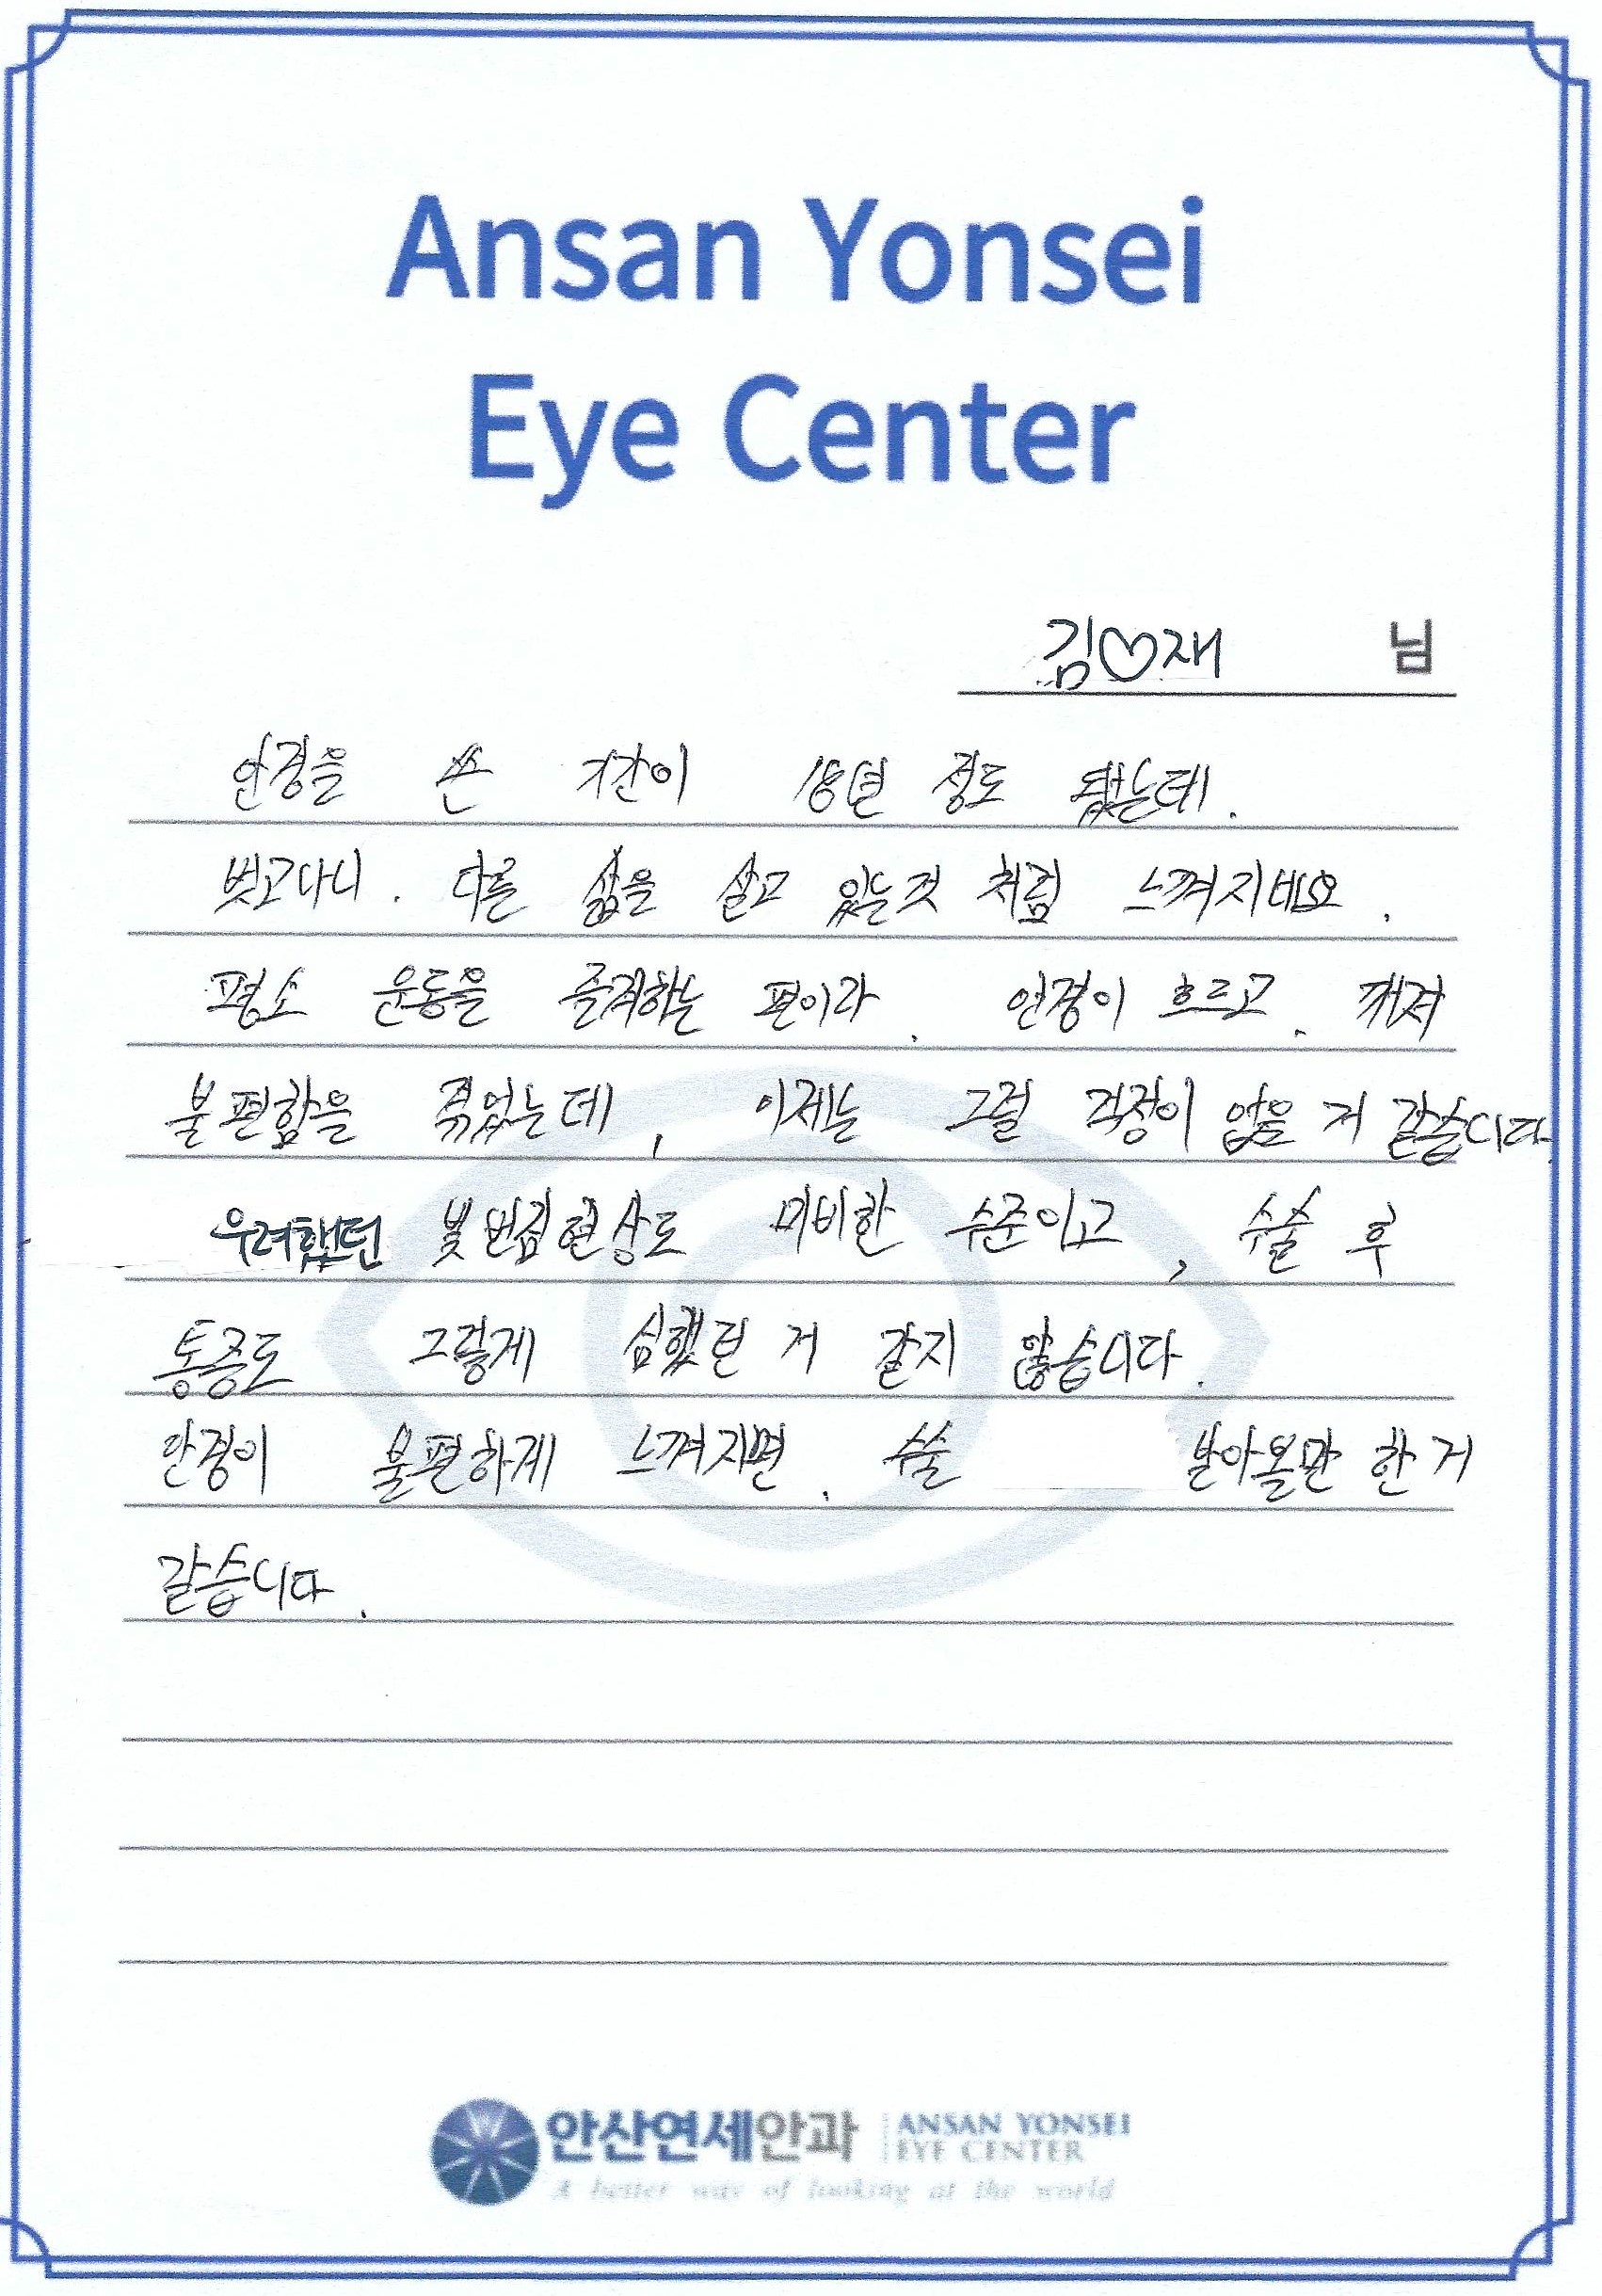 Ansan Yonsei
Eye Center
김♡재 님
안경을 쓴 기간이 18년 정도 됐는데.
벗고다니. 다른 삶을 살고 있는것 처럼 느껴지네요.
평소 운동을 즐겨하는 편이라. 안경이 흐르고. 깨져
불편함을 겪었는데, 이제는 그럴 걱정이 없을 거 같습니다.
우려했던 빛번짐현상도 미비한 수준이고, 수술 후
통증도 그렇게 심했던 거 같지 않습니다.
안경이 불편하게 느껴지면. 수술 받아볼만 한 거
같습니다.
안산연세안과 ANSAN YONSEI
EYE CENTER
A better way of looking at the world